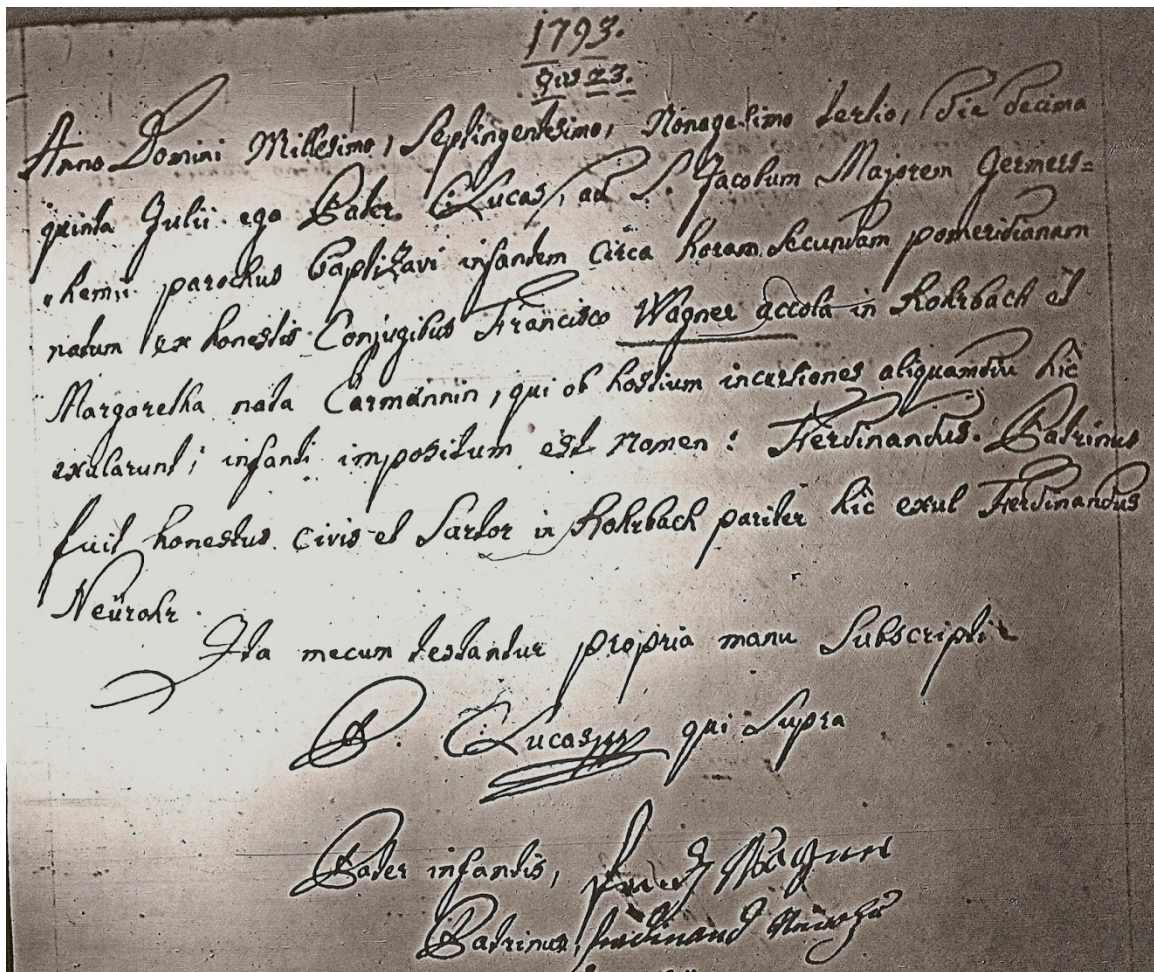 1793.
23.
Anno Domini Millesimo, Septingentesimo, Nonagesimo tertio, die decima
quinta Julii ego Pater Lucas, ad S. Jacobum Majorem Germers=
„hemii parochus baptizavi infantem circa horam secundam pomeridianam
natum ex honestis Conjugibus Francisco Wagner accola in Rohrbach et
Margaretha nata Carmännin, qui ob hostium incursiones aliquamdiu hîc
exularunt; infanti impositum est nomen: Ferdinandus. Patrinus
fuit honestus civis et Sartor in Rohrbach pariter hîc exul Ferdinandus
Neürohr.
Ita mecum testantur propria manu Subscripti
P. Lucas qui Supra
Pater infantis, Wagner
Patrinus, ferdinand